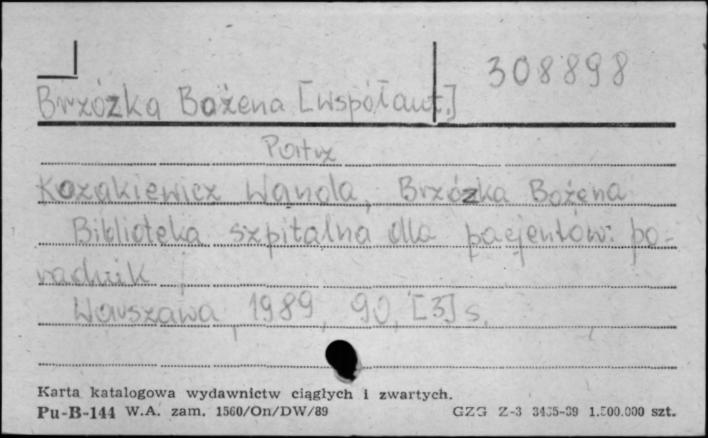 308898
Brzózka Bożena [współaut.]
Patrz
Kozakiewicz Wanda, Brzózka Bożena
Biblioteka szpitalna dla pacjentów: po-
radnik
Warszawa, 1989, 90, [3] s.
Karta katalogowa wydawnictw ciągłych i zwartych.
Pu-B-144 W.A. zam. 1560/On/DW/89 GZG Z-3 3435-89 1.500.000 szt.